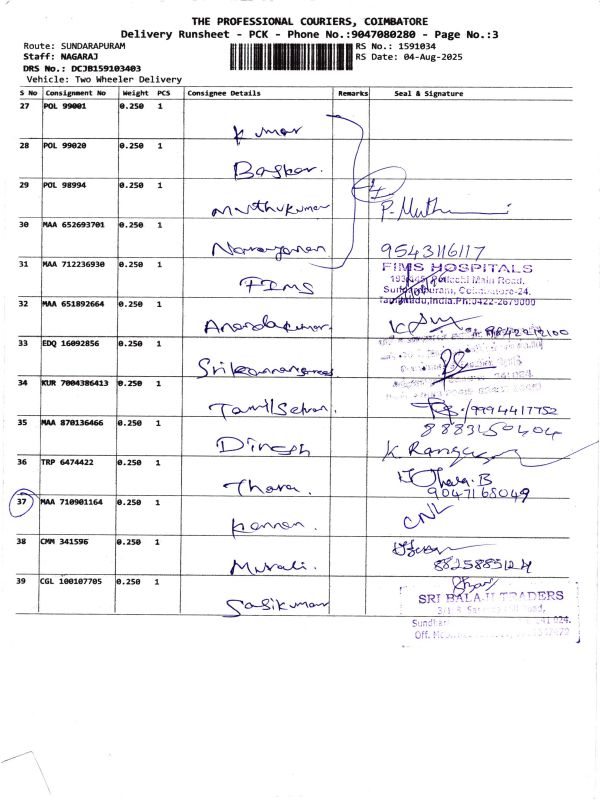 THE PROFESSIONAL COURIERS, COIMBATORE
Delivery Runsheet - PCK - Phone No.:9047080280 - Page No.:3
Route: SUNDARAPURAM
RS No.: 1591034
Staff: NAGARAJ
RS Date: 04-Aug-2025
DRS No.: DCJB159103403
Vehicle: Two Wheeler Delivery
S No Consignment No Weight PCS Consignee Details Remarks Seal & Signature
27 POL 99001 0.250 1
Kumar
28 POL 99020 0.250 1
Baskar.
29 POL 98994 0.250 1
Muthukumar
P. Muthu
30 MAA 652693701 0.250 1
Narayanan 9543116117
31 MAA 712236930 0.250 1
FIMS HOSPITALS
Pollachi Main Road,
FIMS
Coimbatore-24.
Tamilnadu,India.Ph:0422-2679000
32 MAA 651892664 0.250 1
Anandakumar.
33 EDQ 16092856 0.250 1
34 KUR 7004386413 0.250 1
Tamilselvan. 9994417752
35 MAA 870136466 0.250 1
8883450404
Dinesh
36 TRP 6474422 0.250 1
Thara. Thara.B
9047168049
37 MAA 710901164 0.250 1
Kannan. CNL
38 CMM 341596 0.250 1
Murali. 8825885124
39 CGL 100107705 0.250 1
SRI BALAJI TRADERS
Sasikumar